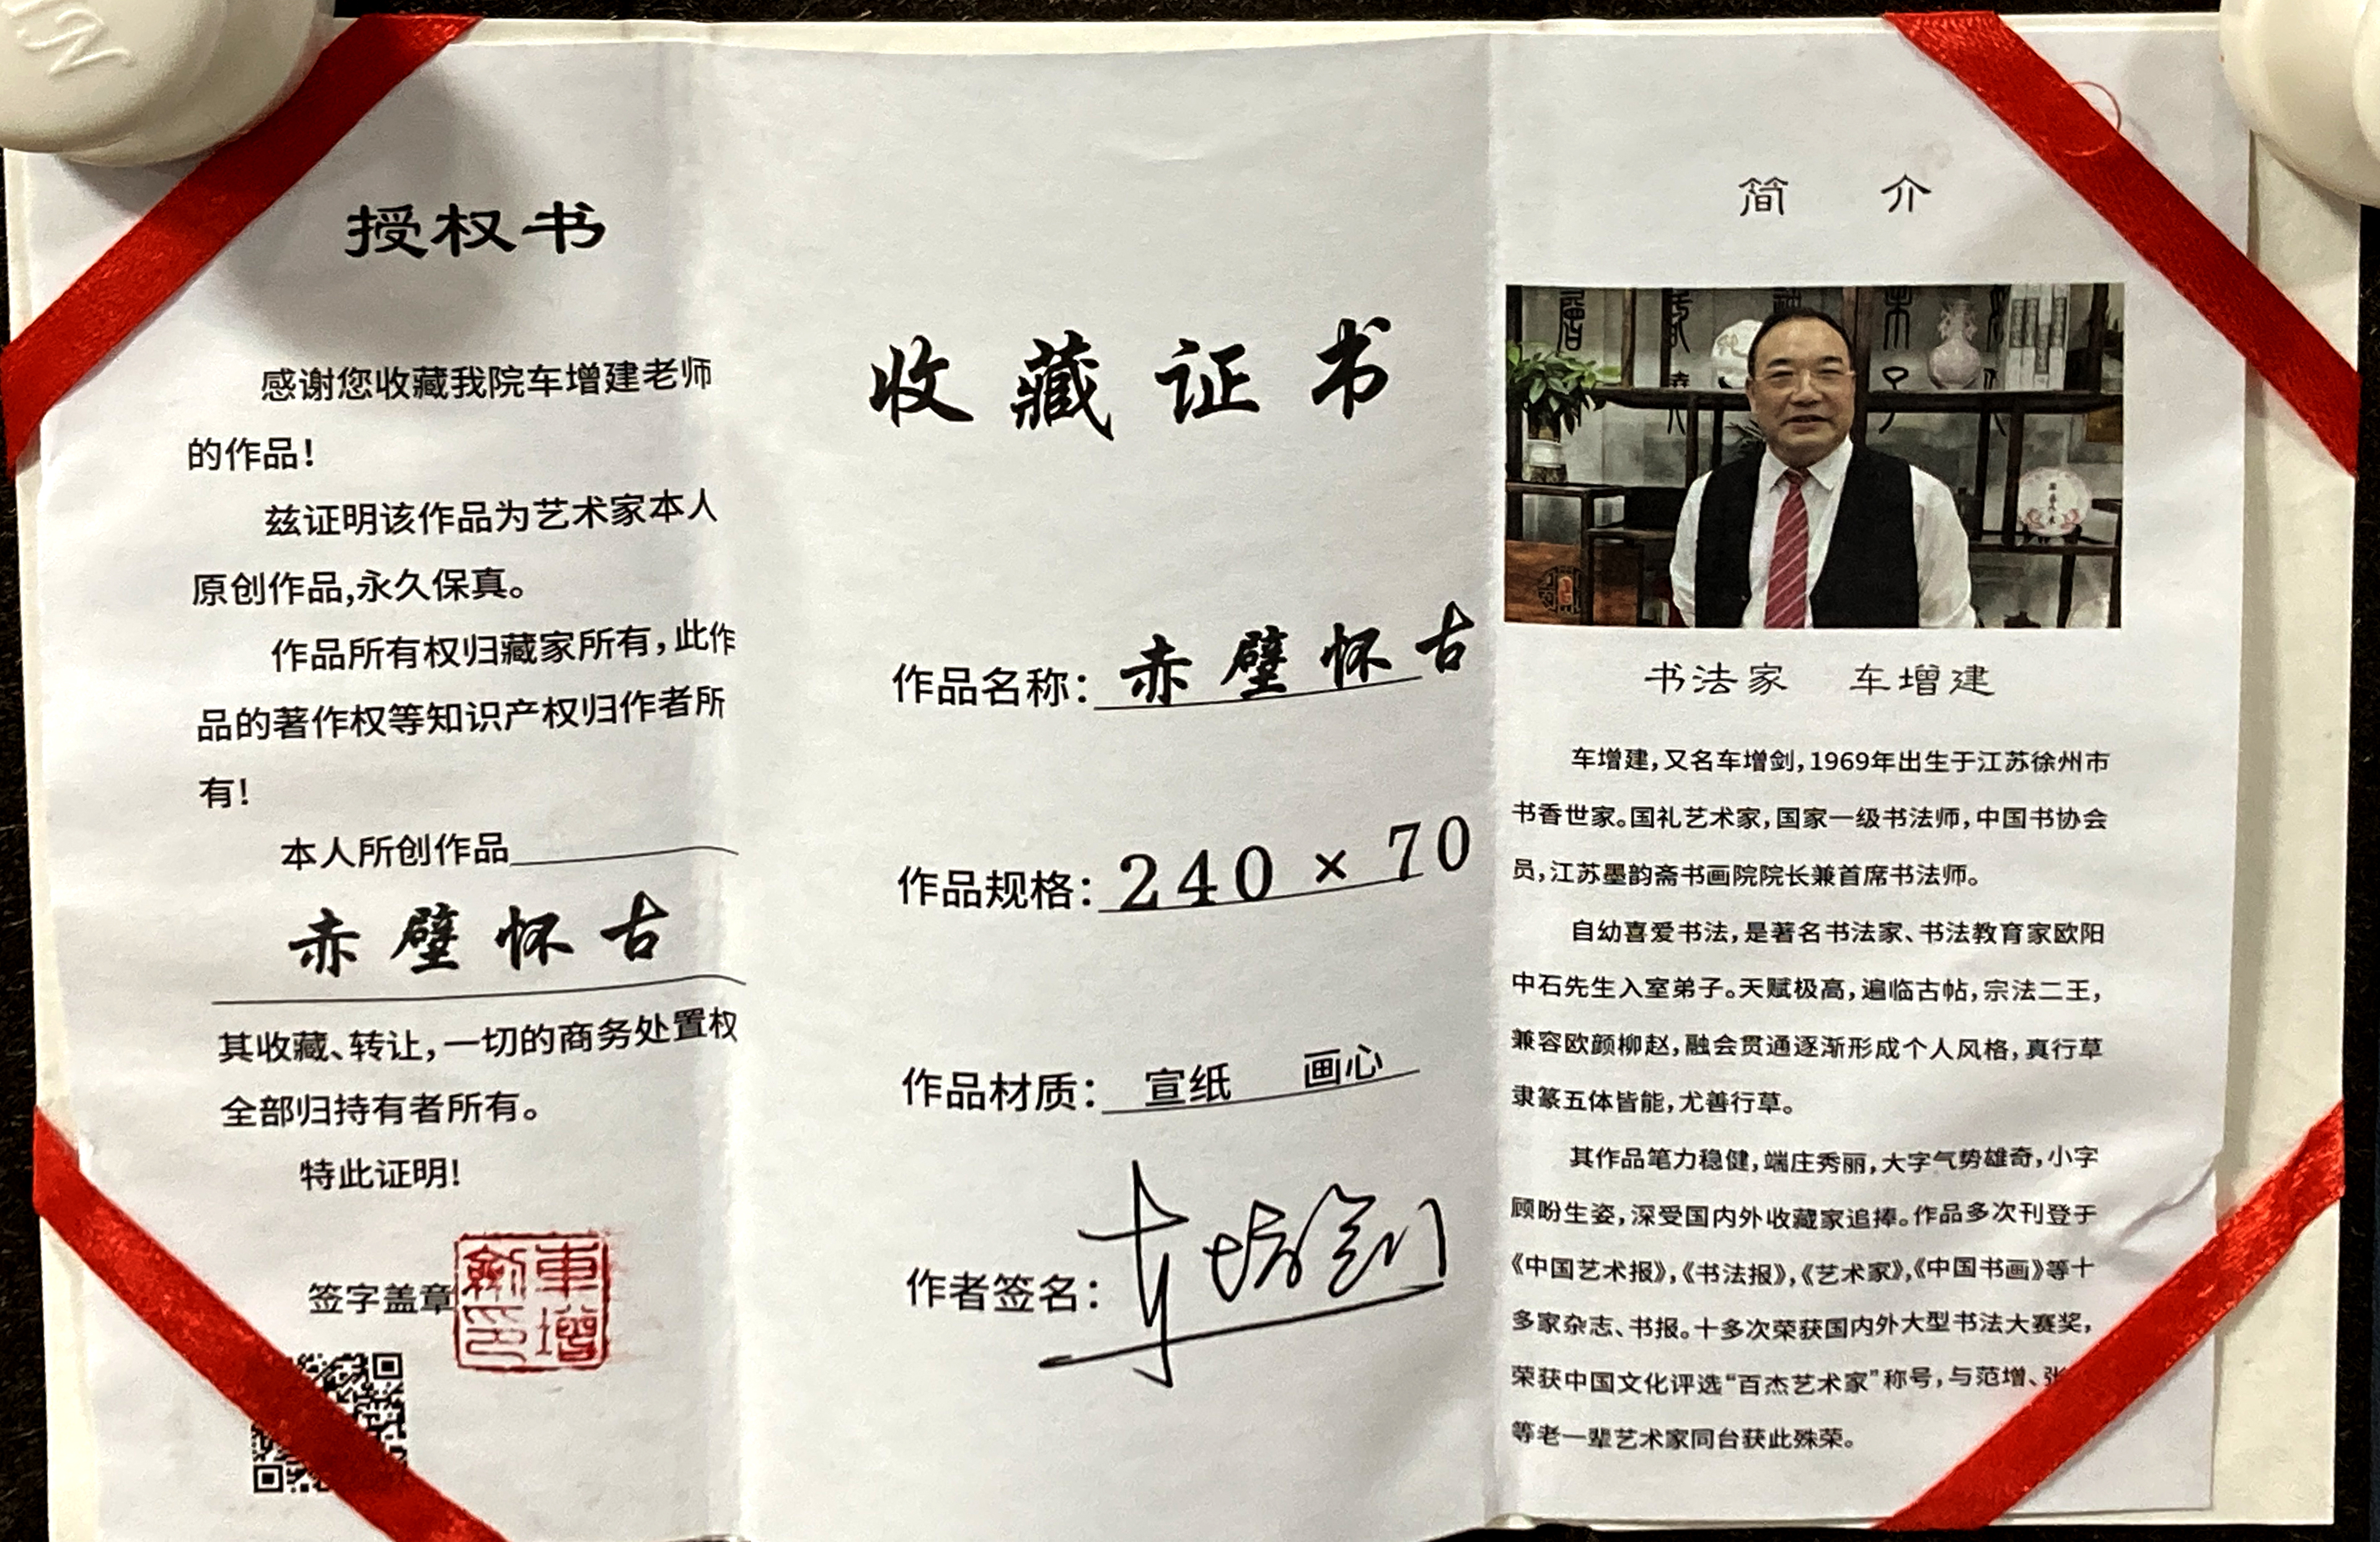 授权书
感谢您收藏我院车增建老师
的作品！
兹证明该作品为艺术家本人
原创作品,永久保真。
作品所有权归藏家所有，此作
品的著作权等知识产权归作者所
有！
本人所创作品
赤壁怀古
其收藏、转让，一切的商务处置权
全部归持有者所有。
特此证明！
签字盖章
車增
劍印
收藏证书
作品名称：赤壁怀古
作品规格：240×70
作品材质：宣纸 画心
作者签名：车增剑
简 介
书法家 车增建
车增建，又名车增剑，1969年出生于江苏徐州市
书香世家。国礼艺术家，国家一级书法师，中国书协会
员，江苏墨韵斋书画院院长兼首席书法师。
自幼喜爱书法，是著名书法家、书法教育家欧阳
中石先生入室弟子。天赋极高，遍临古帖，宗法二王，
兼容欧颜柳赵，融会贯通逐渐形成个人风格，真行草
隶篆五体皆能，尤善行草。
其作品笔力稳健，端庄秀丽，大字气势雄奇，小字
顾盼生姿，深受国内外收藏家追捧。作品多次刊登于
《中国艺术报》，《书法报》，《艺术家》，《中国书画》等十
多家杂志、书报。十多次荣获国内外大型书法大赛奖，
荣获中国文化评选“百杰艺术家”称号，与范增、张
等老一辈艺术家同台获此殊荣。